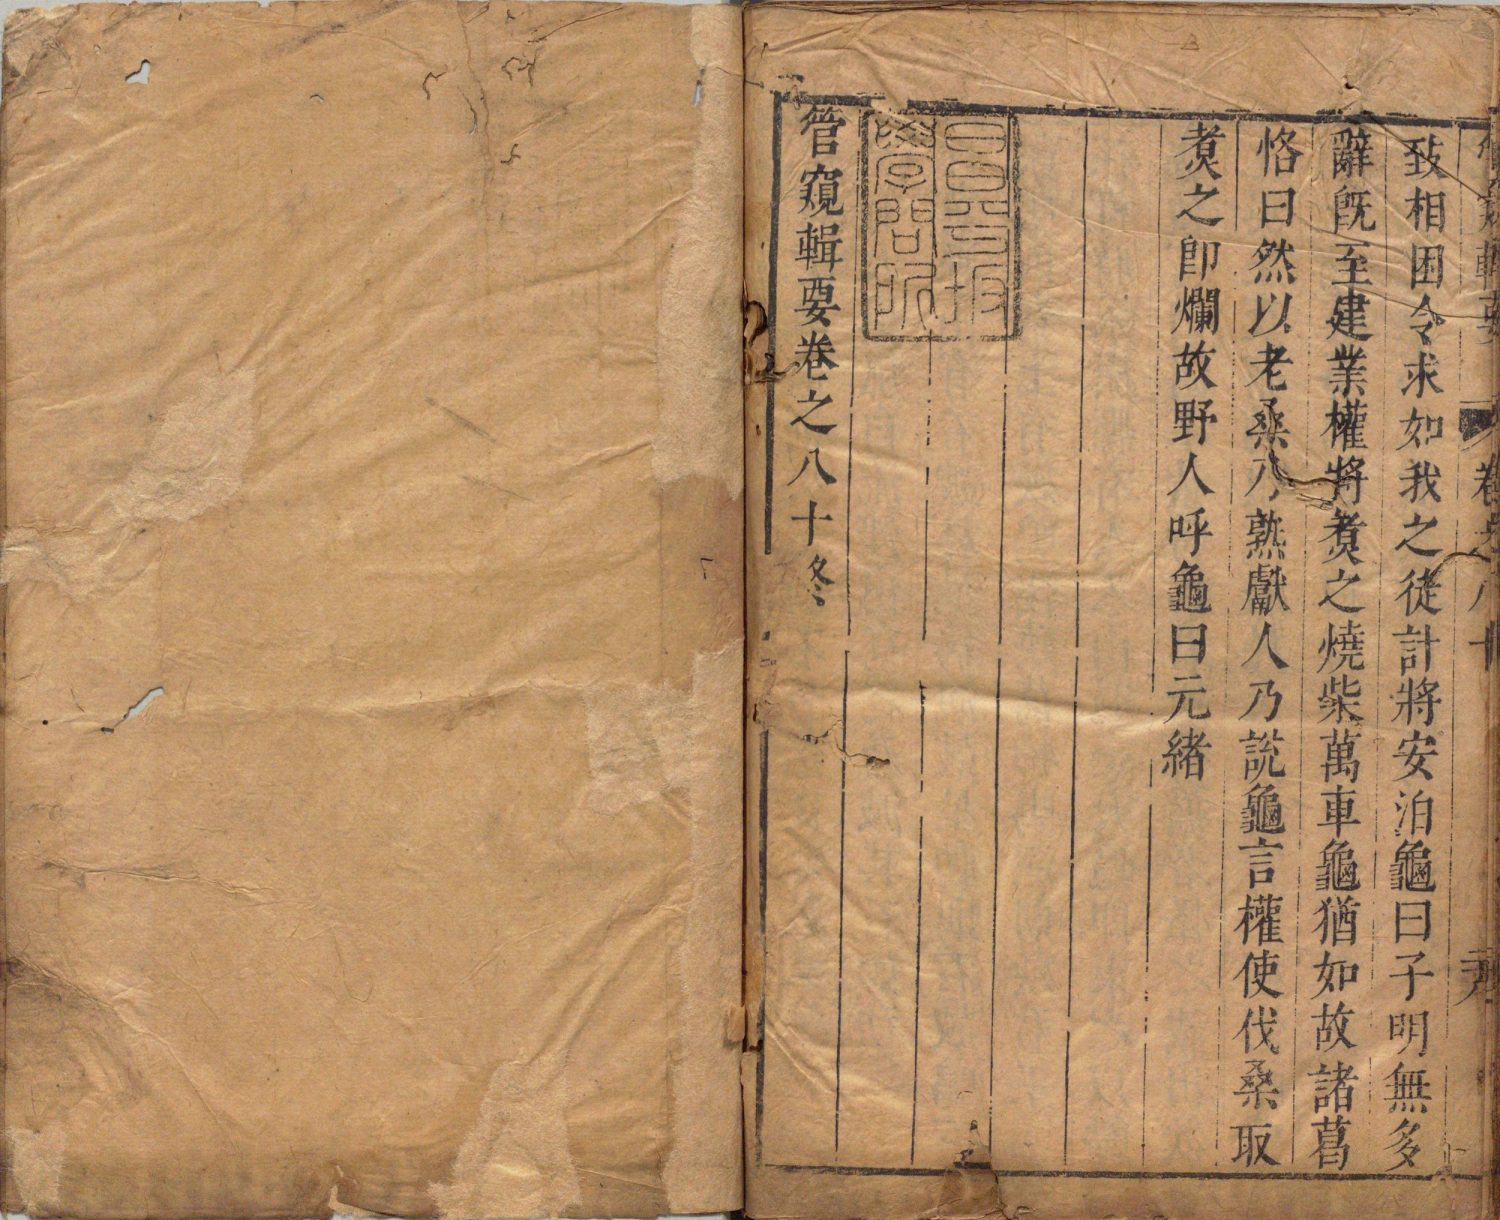 管窺輯要 卷之八十
致相困令求如我之徒計將安泊龜曰子明無多
辭旣至建業權將煑之燒柴萬車龜猶如故諸葛
恪曰然以老桑乃熟獻人乃説龜言權使伐桑取
煑之卽爛故野人呼龜曰元緒
昌平坂
學問所
管窺輯要卷之八十終